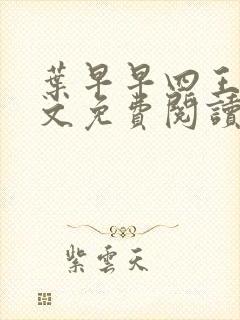 葉早早四王
文免費閱讀
紫雲天